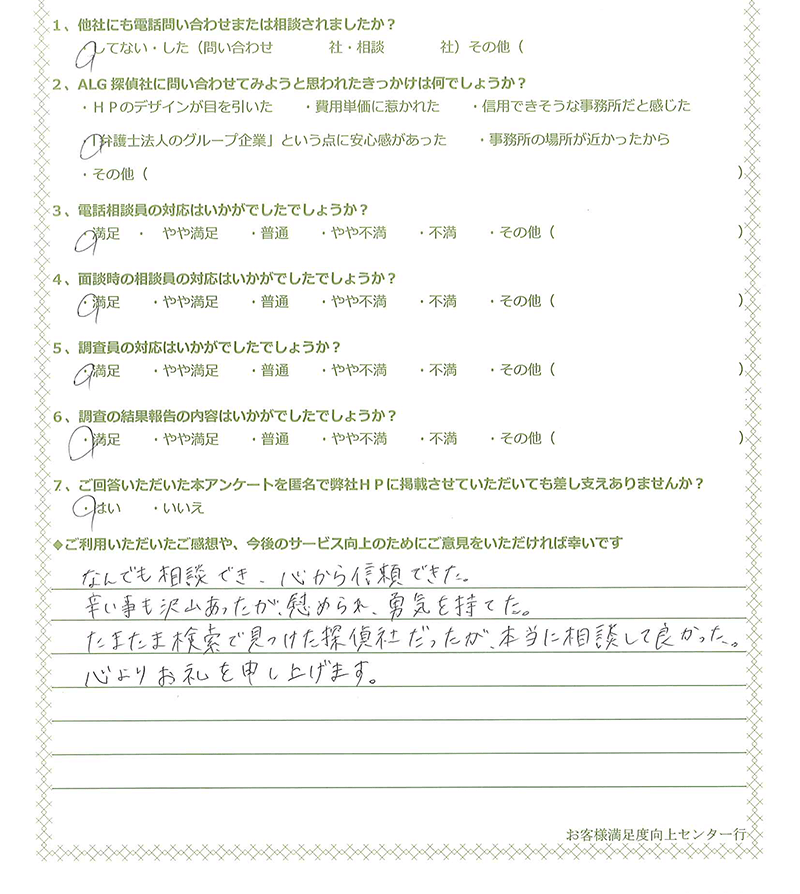 1、他社にも電話問い合わせまたは相談されましたか？
・してない・した（問い合わせ　　　社・相談　　　社）その他（
2、ALG探偵社に問い合わせてみようと思われたきっかけは何でしょうか？
・ＨＰのデザインが目を引いた　・費用単価に惹かれた　・信用できそうな事務所だと感じた
・「弁護士法人のグループ企業」という点に安心感があった　・事務所の場所が近かったから
・その他（　　　）
3、電話相談員の対応はいかがでしたでしょうか？
・満足　・　やや満足　・普通　・やや不満　・不満　・その他（　　　）
4、面談時の相談員の対応はいかがでしたでしょうか？
・満足　・やや満足　・普通　・やや不満　・不満　・その他（　　　）
5、調査員の対応はいかがでしたでしょうか？
・満足　・やや満足　・普通　・やや不満　・不満　・その他（　　　）
6、調査の結果報告の内容はいかがでしたでしょうか？
・満足　・やや満足　・普通　・やや不満　・不満　・その他（　　　）
7、ご回答いただいた本アンケートを匿名で弊社ＨＰに掲載させていただいても差し支えありませんか？
・はい　・いいえ
◆ご利用いただいたご感想や、今後のサービス向上のためにご意見をいただければ幸いです
なんでも相談でき、心から信頼できた。
辛い事も沢山あったが、慰められ、勇気を持てた。
たまたま検索で見つけた探偵社だったが、本当に相談して良かった。
心よりお礼を申し上げます。
お客様満足度向上センター行